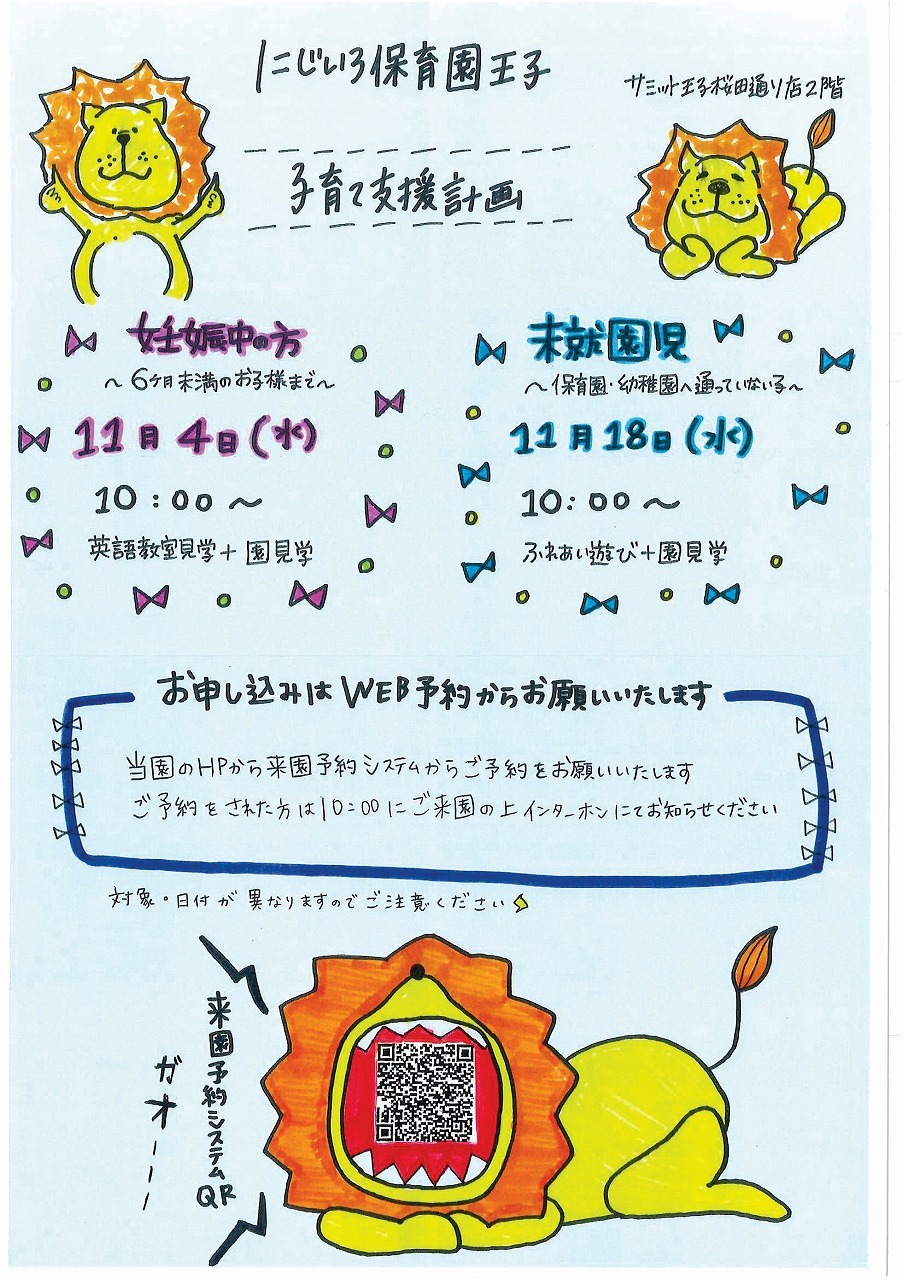 にじいろ保育園王子
サミット王子桜田通り店2階
子育て支援計画
妊娠中の方
～6ケ月未満のお子様まで～
11月4日(水)
10：00～
英語教室見学＋園見学
未就園児
～保育園・幼稚園へ通っていない子～
11月18日(水)
10：00～
ふれあい遊び＋園見学
お申し込みはWEB予約からお願いいたします
当園のHPから来園予約システムからご予約をお願いいたします
ご予約をされた方は10:00にご来園の上インターホンにてお知らせください
対象・日付が異なりますのでご注意ください
来園予約システムQR
ガオーーー